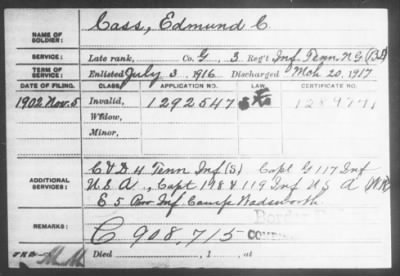 Cass, Edmund C.
NAME OF SOLDIER:
SERVICE: Late rank, Co. G 3 Reg't Inf. Tenn. N G (BS)
TERM OF SERVICE: Enlisted July 3 1916 Discharged Mch 20, 1917
DATE OF FILING. CLASS. APPLICATION NO. LAW. CERTIFICATE NO.
1902 Nov. 5 Invalid, 1292547
Widow,
Minor,
ADDITIONAL SERVICES: C & D. 4 Tenn Inf (S) Capt G 117 Inf
U.S.A., Capt 198 & 119 Inf U S A
E 5 Inf Camp Wadsworth
REMARKS: C 908,715
Died , 1 , at